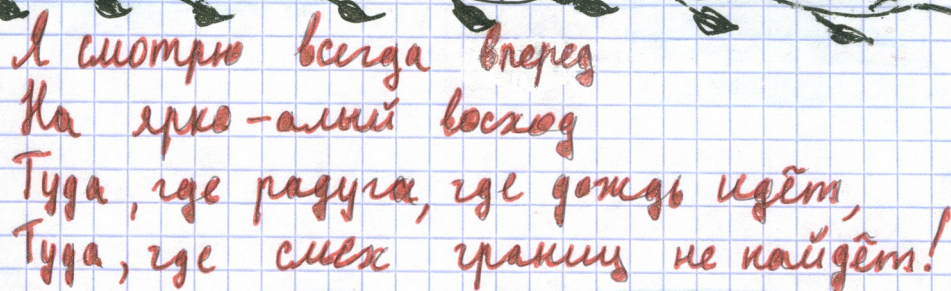 Я смотрю всегда вперед
На ярко-алый восход
Туда, где радуга, где дождь идёт,
Туда, где смех границ не найдёт!